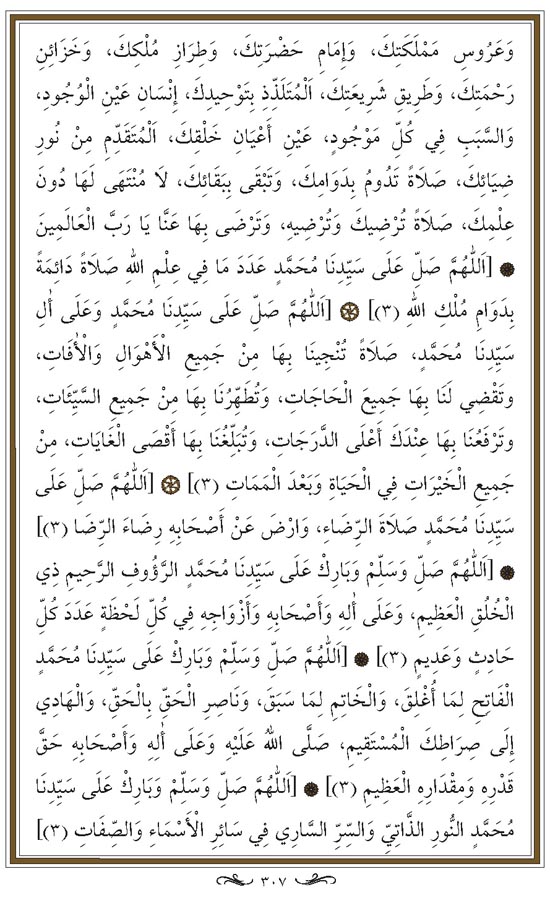 وَعَرُوسِ مَمْلَكَتِكَ، وَإِمَامِ حَضْرَتِكَ، وَطِرَازِ مُلْكِكَ، وَخَزَائِنِ
رَحْمَتِكَ، وَطَرِيقِ شَرِيعَتِكَ، اَلْمُتَلَذِّذِ بِتَوْحِيدِكَ، إِنْسَانِ عَيْنِ الْوُجُودِ،
وَالسَّبَبِ فِي كُلِّ مَوْجُودٍ، عَيْنِ أَعْيَانِ خَلْقِكَ، اَلْمُتَقَدِّمِ مِنْ نُورِ
ضِيَائِكَ، صَلَاةً تَدُومُ بِدَوَامِكَ، وَتَبْقَى بِبَقَائِكَ، لَا مُنْتَهَى لَهَا دُونَ
عِلْمِكَ، صَلَاةً تُرْضِيكَ وَتُرْضِيهِ، وَتَرْضَى بِهَا عَنَّا يَا رَبَّ الْعَالَمِينَ
[اَللّٰهُمَّ صَلِّ عَلَى سَيِّدِنَا مُحَمَّدٍ عَدَدَ مَا فِي عِلْمِ اللهِ صَلَاةً دَائِمَةً
بِدَوَامِ مُلْكِ اللهِ (٣)] [اَللّٰهُمَّ صَلِّ عَلَى سَيِّدِنَا مُحَمَّدٍ وَعَلَى أٰلِ
سَيِّدِنَا مُحَمَّدٍ، صَلَاةً تُنْجِينَا بِهَا مِنْ جَمِيعِ الْأَهْوَالِ وَالْأٰفَاتِ،
وَتَقْضِي لَنَا بِهَا جَمِيعَ الْحَاجَاتِ، وَتُطَهِّرُنَا بِهَا مِنْ جَمِيعِ السَّيِّئَاتِ،
وَتَرْفَعُنَا بِهَا عِنْدَكَ أَعْلَى الدَّرَجَاتِ، وَتُبَلِّغُنَا بِهَا أَقْصَى الْغَايَاتِ، مِنْ
جَمِيعِ الْخَيْرَاتِ فِي الْحَيَاةِ وَبَعْدَ الْمَمَاتِ (٣)] [اَللّٰهُمَّ صَلِّ عَلَى
سَيِّدِنَا مُحَمَّدٍ صَلَاةَ الرِّضَاءِ، وَارْضَ عَنْ أَصْحَابِهِ رِضَاءَ الرِّضَا (٣)]
[اَللّٰهُمَّ صَلِّ وَسَلِّمْ وَبَارِكْ عَلَى سَيِّدِنَا مُحَمَّدٍ الرَّؤُوفِ الرَّحِيمِ ذِي
الْخُلُقِ الْعَظِيمِ، وَعَلَى أٰلِهِ وَأَصْحَابِهِ وَأَزْوَاجِهِ فِي كُلِّ لَحْظَةٍ عَدَدَ كُلِّ
حَادِثٍ وَعَدِيمٍ (٣)] [اَللّٰهُمَّ صَلِّ وَسَلِّمْ وَبَارِكْ عَلَى سَيِّدِنَا مُحَمَّدٍ
الْفَاتِحِ لِمَا أُغْلِقَ، وَالْخَاتِمِ لِمَا سَبَقَ، وَنَاصِرِ الْحَقِّ بِالْحَقِّ، وَالْهَادِي
إِلَى صِرَاطِكَ الْمُسْتَقِيمِ، صَلَّى اللهُ عَلَيْهِ وَعَلَى أٰلِهِ وَأَصْحَابِهِ حَقَّ
قَدْرِهِ وَمِقْدَارِهِ الْعَظِيمِ (٣)] [اَللّٰهُمَّ صَلِّ وَسَلِّمْ وَبَارِكْ عَلَى سَيِّدِنَا
مُحَمَّدٍ النُّورِ الذَّاتِيِّ وَالسِّرِّ السَّارِي فِي سَائِرِ الْأَسْمَاءِ وَالصِّفَاتِ (٣)]
٣٠٧